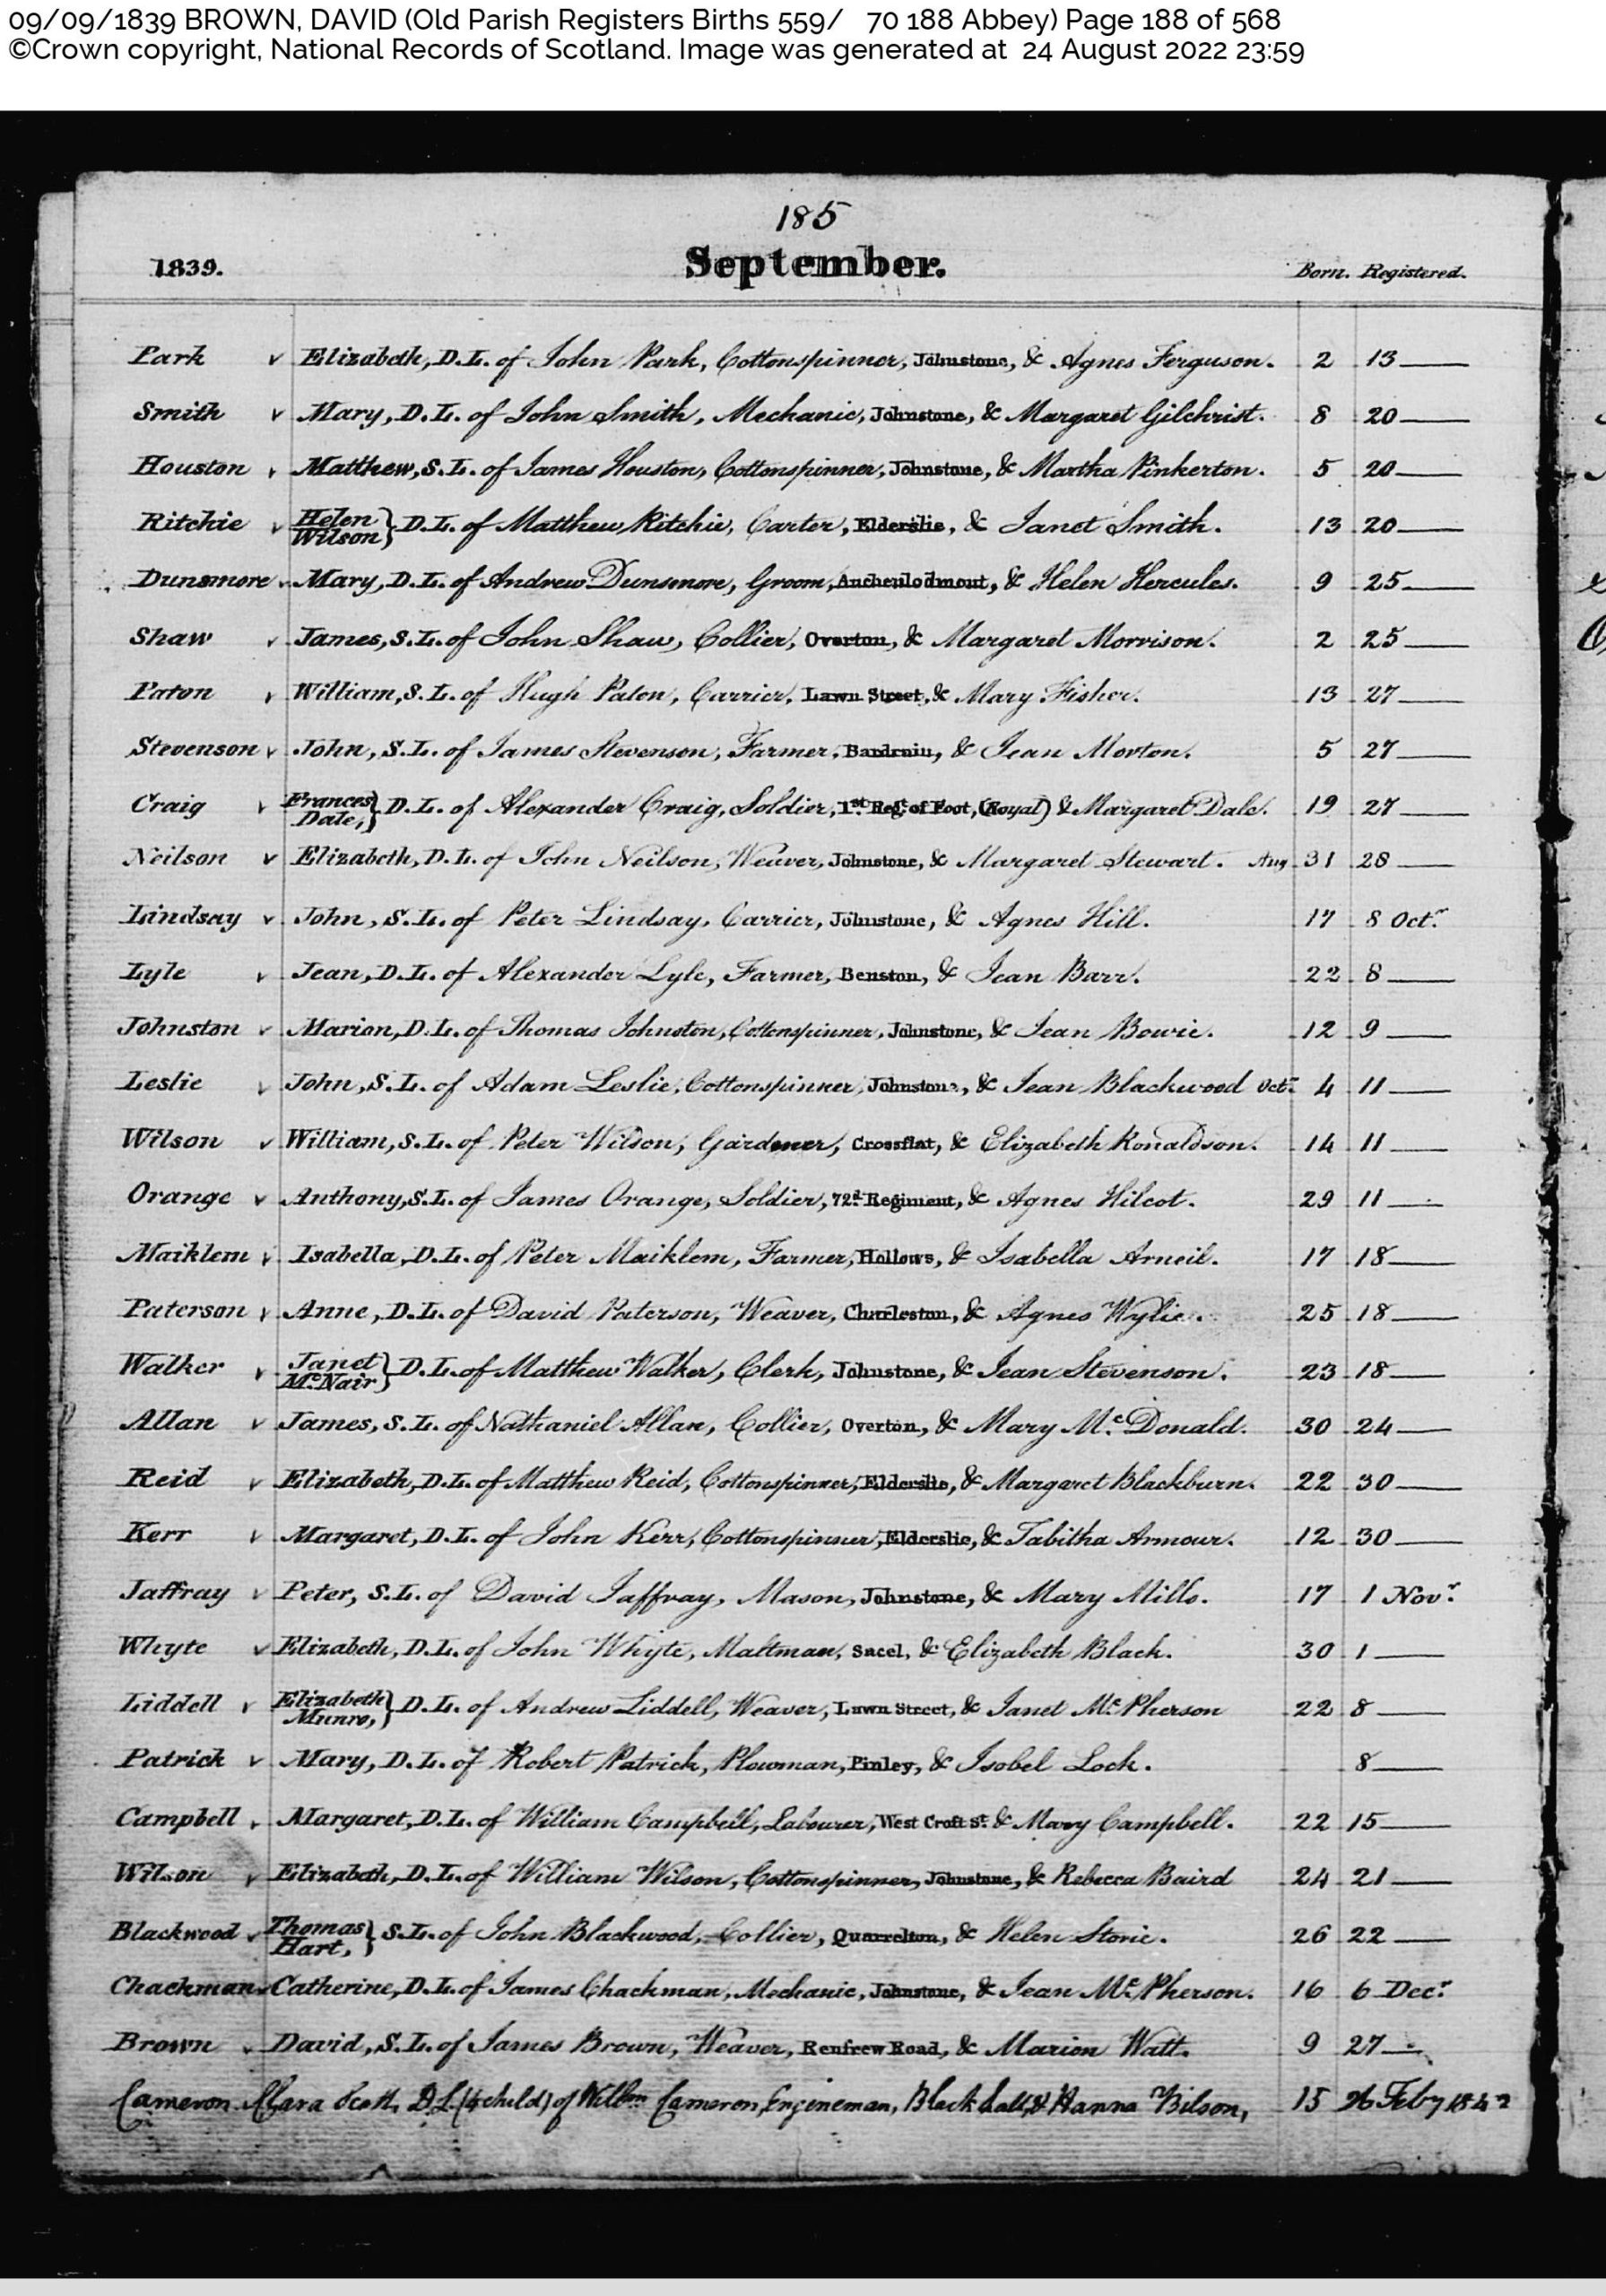 09/09/1839 BROWN, DAVID (Old Parish Registers Births 559/ 70 188 Abbey) Page 188 of 568
©Crown copyright, National Records of Scotland. Image was generated at 24 August 2022 23:59
185
1839. September. Born. Registered.
Park Elizabeth, D.L. of John Park, Cottonspinner, Johnstone, & Agnes Ferguson. 2 13
Smith Mary, D.L. of John Smith, Mechanic, Johnstone, & Margaret Gilchrist. 8 20
Houston Matthew, S.L. of James Houston, Cottonspinner, Johnstone, & Martha Pinkerton. 5 20
Ritchie Helen Wilson} D.L. of Matthew Ritchie, Carter, Elderslie, & Janet Smith. 13 20
Dunsmore Mary, D.L. of Andrew Dunsmore, Groom, Auchenlodmont, & Helen Hercules. 9 25
Shaw James, S.L. of John Shaw, Collier, Overton, & Margaret Morrison. 2 25
Paton William, S.L. of Hugh Paton, Carrier, Lawn Street, & Mary Fisher. 13 27
Stevenson John, S.L. of James Stevenson, Farmer, Bardrain, & Jean Morton. 5 27
Craig Frances Dale,} D.L. of Alexander Craig, Soldier, 1st Regt. of Foot, (Royal) & Margaret Dale. 19 27
Neilson Elizabeth, D.L. of John Neilson, Weaver, Johnstone, & Margaret Stewart. Aug 31 28
Lindsay John, S.L. of Peter Lindsay, Carrier, Johnstone, & Agnes Hill. 17 8 Octr.
Lyle Jean, D.L. of Alexander Lyle, Farmer, Benston, & Jean Barr. 22 8
Johnston Marion, D.L. of Thomas Johnston, Cottonspinner, Johnstone, & Jean Bowie. 12 9
Leslie John, S.L. of Adam Leslie, Cottonspinner, Johnstone, & Jean Blackwood Octr. 4 11
Wilson William, S.L. of Peter Wilson, Gardener, Crossflat, & Elizabeth Ronaldson. 14 11
Orange Anthony, S.L. of James Orange, Soldier, 72d. Regiment, & Agnes Hilcot. 29 11
Maiklem Isabella, D.L. of Peter Maiklem, Farmer, Hollows, & Isabella Arneil. 17 18
Paterson Anne, D.L. of David Paterson, Weaver, Charleston, & Agnes Wylie. 25 18
Walker Janet McNair} D.L. of Matthew Walker, Clerk, Johnstone, & Jean Stevenson. 23 18
Allan James, S.L. of Nathaniel Allan, Collier, Overton, & Mary Mc. Donald. 30 24
Reid Elizabeth, D.L. of Matthew Reid, Cottonspinner, Elderslie, & Margaret Blackburn. 22 30
Kerr Margaret, D.L. of John Kerr, Cottonspinner, Elderslie, & Tabitha Armour. 12 30
Jaffray Peter, S.L. of David Jaffray, Mason, Johnstone, & Mary Mills. 17 1 Novr.
Whyte Elizabeth, D.L. of John Whyte, Maltman, Sacel, & Elizabeth Black. 30 1
Liddell Elizabeth Munro,} D.L. of Andrew Liddell, Weaver, Lawn Street, & Janet McPherson 22 8
Patrick Mary, D.L. of Robert Patrick, Plowman, Pinley, & Isobel Lock. 8
Campbell Margaret, D.L. of William Campbell, Labourer, West Croft St. & Mary Campbell. 22 15
Wilson Elizabeth, D.L. of William Wilson, Cottonspinner, Johnstone, & Rebecca Baird 24 21
Blackwood Thomas Hart,} S.L. of John Blackwood, Collier, Quarrelton, & Helen Storie. 26 22
Chackman Catherine, D.L. of James Chackman, Mechanic, Johnstone, & Jean McPherson. 16 6 Decr.
Brown David, S.L. of James Brown, Weaver, Renfrew Road, & Marion Watt. 9 27
Cameron Clara Scott, D.L. (4 child) of Willm Cameron, Engineman, Blackhall, & Hanna Bilson, 15 26 Feby 1842